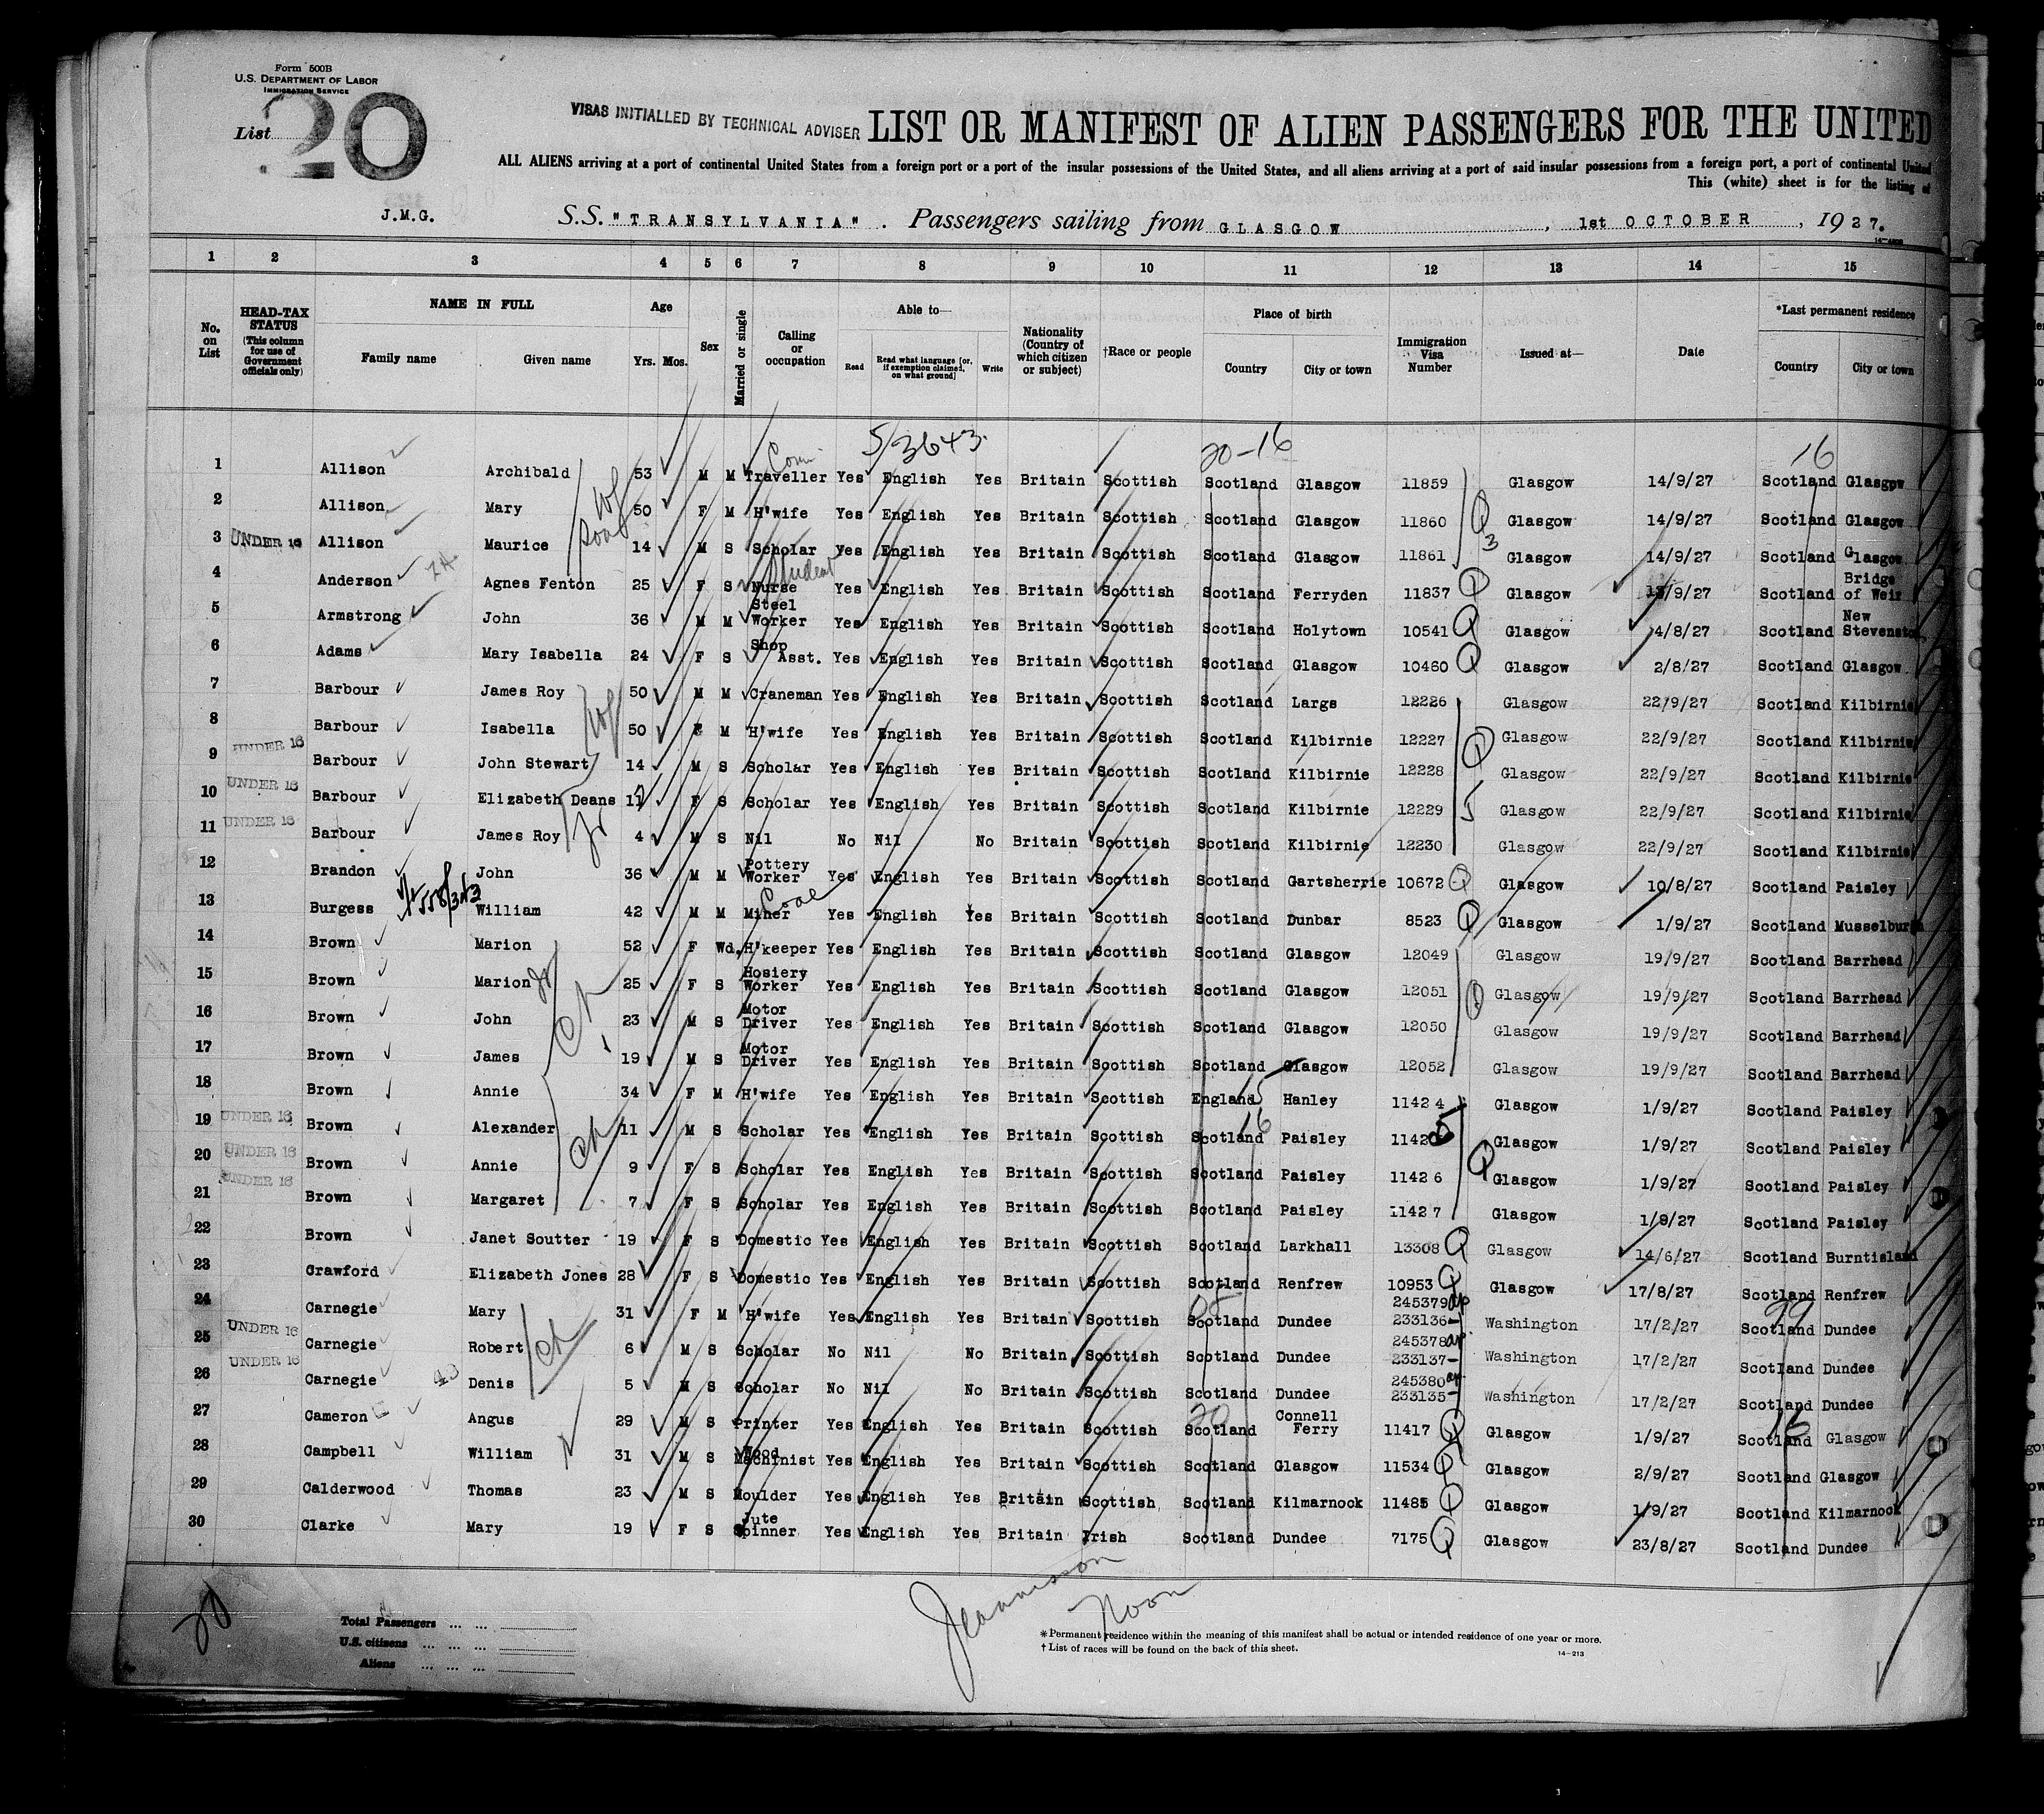 Form 500B
U.S. DEPARTMENT OF LABOR
IMMIGRATION SERVICE
List 20
VISAS INITIALLED BY TECHNICAL ADVISER
LIST OR MANIFEST OF ALIEN PASSENGERS FOR THE UNITED
ALL ALIENS arriving at a port of continental United States from a foreign port or a port of the insular possessions of the United States, and all aliens arriving at a port of said insular possessions from a foreign port, a port of continental United
This (white) sheet is for the listing of
J.M.G. S.S. "TRANSYLVANIA". Passengers sailing from GLASGOW, 1st OCTOBER, 1927.
1 2 3 4 5 6 7 8 9 10 11 12 13 14 15
No. on List HEAD-TAX STATUS (This column for use of Government officials only) NAME IN FULL Family name Given name Age Yrs. Mos. Sex Married or single Calling or occupation Able to— Read Read what language [or, if exemption claimed, on what ground] Write Nationality (Country of which citizen or subject) †Race or people Place of birth Country City or town Immigration Visa Number Issued at— Date *Last permanent residence Country City or town
5/3643. 20-16 16
1 Allison Archibald 53 M M Com Traveller Yes English Yes Britain Scottish Scotland Glasgow 11859 Glasgow 14/9/27 Scotland Glasgow
2 Allison Mary wf 50 F M H'wife Yes English Yes Britain Scottish Scotland Glasgow 11860 Glasgow 14/9/27 Scotland Glasgow
3 UNDER 16 Allison Maurice son 14 M S Scholar Yes English Yes Britain Scottish Scotland Glasgow 11861 3 Glasgow 14/9/27 Scotland Glasgow
4 Anderson Agnes Fenton 25 F S Nurse Student Yes English Yes Britain Scottish Scotland Ferryden 11837 Glasgow 13/9/27 Scotland Bridge of Weir
5 Armstrong John 36 M M Steel Worker Yes English Yes Britain Scottish Scotland Holytown 10541 Glasgow 4/8/27 Scotland New Stevenston
6 Adams Mary Isabella 24 F S Shop Asst. Yes English Yes Britain Scottish Scotland Glasgow 10460 Glasgow 2/8/27 Scotland Glasgow
7 Barbour James Roy 50 M M Craneman Yes English Yes Britain Scottish Scotland Largs 12226 Glasgow 22/9/27 Scotland Kilbirnie
8 Barbour Isabella wf 50 F M H'wife Yes English Yes Britain Scottish Scotland Kilbirnie 12227 Glasgow 22/9/27 Scotland Kilbirnie
9 UNDER 16 Barbour John Stewart 14 M S Scholar Yes English Yes Britain Scottish Scotland Kilbirnie 12228 Glasgow 22/9/27 Scotland Kilbirnie
10 UNDER 16 Barbour Elizabeth Deans F S Scholar Yes English Yes Britain Scottish Scotland Kilbirnie 12229 5 Glasgow 22/9/27 Scotland Kilbirnie
11 UNDER 16 Barbour James Roy Jr 4 M S Nil No Nil No Britain Scottish Scotland Kilbirnie 12230 Glasgow 22/9/27 Scotland Kilbirnie
12 Brandon John 36 M M Pottery Worker Yes English Yes Britain Scottish Scotland Gartsherrie 10672 Glasgow 10/8/27 Scotland Paisley
13 Burgess William 42 M M Coal Miner Yes English Yes Britain Scottish Scotland Dunbar 8523 Glasgow 1/9/27 Scotland Musselburgh
14 Brown Marion 52 F Wd. H'keeper Yes English Yes Britain Scottish Scotland Glasgow 12049 Glasgow 19/9/27 Scotland Barrhead
15 Brown Marion Jr 25 F S Hosiery Worker Yes English Yes Britain Scottish Scotland Glasgow 12051 Glasgow 19/9/27 Scotland Barrhead
16 Brown John ch 23 M S Motor Driver Yes English Yes Britain Scottish Scotland Glasgow 12050 Glasgow 19/9/27 Scotland Barrhead
17 Brown James 19 M S Motor Driver Yes English Yes Britain Scottish Scotland Glasgow 12052 Glasgow 19/9/27 Scotland Barrhead
18 Brown Annie 34 F M H'wife Yes English Yes Britain Scottish England 15 Hanley 11424 Glasgow 1/9/27 Scotland Paisley
19 UNDER 16 Brown Alexander 11 M S Scholar Yes English Yes Britain Scottish Scotland 16 Paisley 11425 Glasgow 1/9/27 Scotland Paisley
20 UNDER 16 Brown Annie ch 9 F S Scholar Yes English Yes Britain Scottish Scotland Paisley 11426 Glasgow 1/9/27 Scotland Paisley
21 UNDER 16 Brown Margaret 7 F S Scholar Yes English Yes Britain Scottish Scotland Paisley 11427 Glasgow 1/9/27 Scotland Paisley
22 Brown Janet Soutter 19 F S Domestic Yes English Yes Britain Scottish Scotland Larkhall 13308 Glasgow 14/6/27 Scotland Burntisland
23 Crawford Elizabeth Jones 28 F S Domestic Yes English Yes Britain Scottish Scotland Renfrew 10953 Glasgow 17/8/27 Scotland Renfrew
24 Carnegie Mary 31 F M H'wife Yes English Yes Britain Scottish Scotland Dundee 245379 233136 Washington 17/2/27 99 Scotland Dundee
25 UNDER 16 Carnegie Robert ch 6 M S Scholar No Nil No Britain Scottish Scotland Dundee 245378 233137 Washington 17/2/27 Scotland Dundee
26 UNDER 16 Carnegie Denis 5 M S Scholar No Nil No Britain Scottish Scotland Dundee 245380 233135 Washington 17/2/27 Scotland Dundee
27 Cameron Angus 29 M S Printer Yes English Yes Britain Scottish 20 Scotland Connell Ferry 11417 Glasgow 1/9/27 16 Scotland Glasgow
28 Campbell William 31 M S Wood Machinist Yes English Yes Britain Scottish Scotland Glasgow 11534 Glasgow 2/9/27 Scotland Glasgow
29 Calderwood Thomas 23 M S Moulder Yes English Yes Britain Scottish Scotland Kilmarnock 11485 Glasgow 1/9/27 Scotland Kilmarnock
30 Clarke Mary 19 F S Jute Spinner Yes English Yes Britain Irish Scotland Dundee 7175 Glasgow 23/8/27 Scotland Dundee
20
Noon
Total Passengers
U.S. citizens
Aliens
*Permanent residence within the meaning of this manifest shall be actual or intended residence of one year or more.
†List of races will be found on the back of this sheet.
14-213